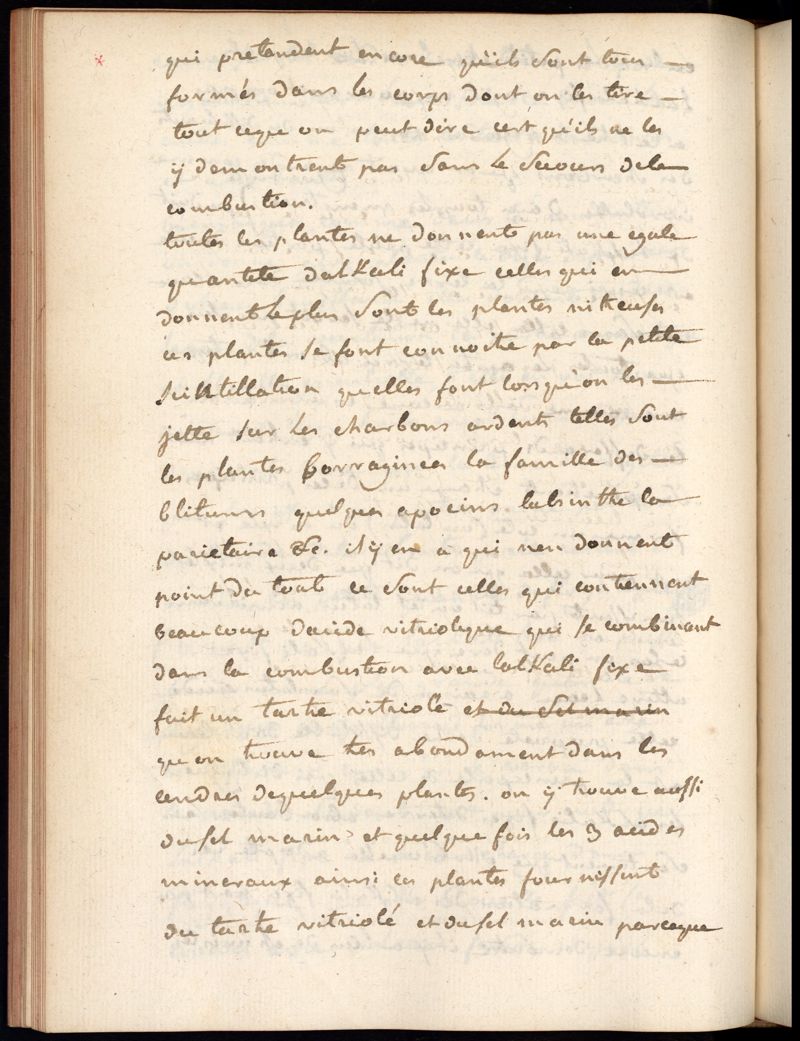 qui pretendent encore qu'ils sont tous
formés dans les corps dont on les tire
tout ceque on peut dire cest qu'ils ne les
ÿ demontrent pas sans le secours dela
combustion.
toutes les plantes ne donnent pas une egale
quantité dalkali fixe celles qui en
donnent leplus sont les plantes nitreuses
ces plantes se font connoitre par la petite
scintillation quelles font lorsqu'on les
jette sur les charbons ardents telles sont
les plantes borraginees la famille des
blitums quelques apocins labsinthe la
parietaire &c. il ÿ en a qui nen donnent
point du tout ce sont celles qui contiennent
beaucoup dacide vitriolique qui se combinant
dans la combustion avec lalkali fixe
fait un tartre vitriolé et du sel marin
qu on trouve tres abondament dans les
cendres dequelques plantes. on ÿ trouve aussi
dusel marin et quelque fois les 3 acides
mineraux ainsi ces plantes fournissent
du tartre vitriolé et dusel marin parceque